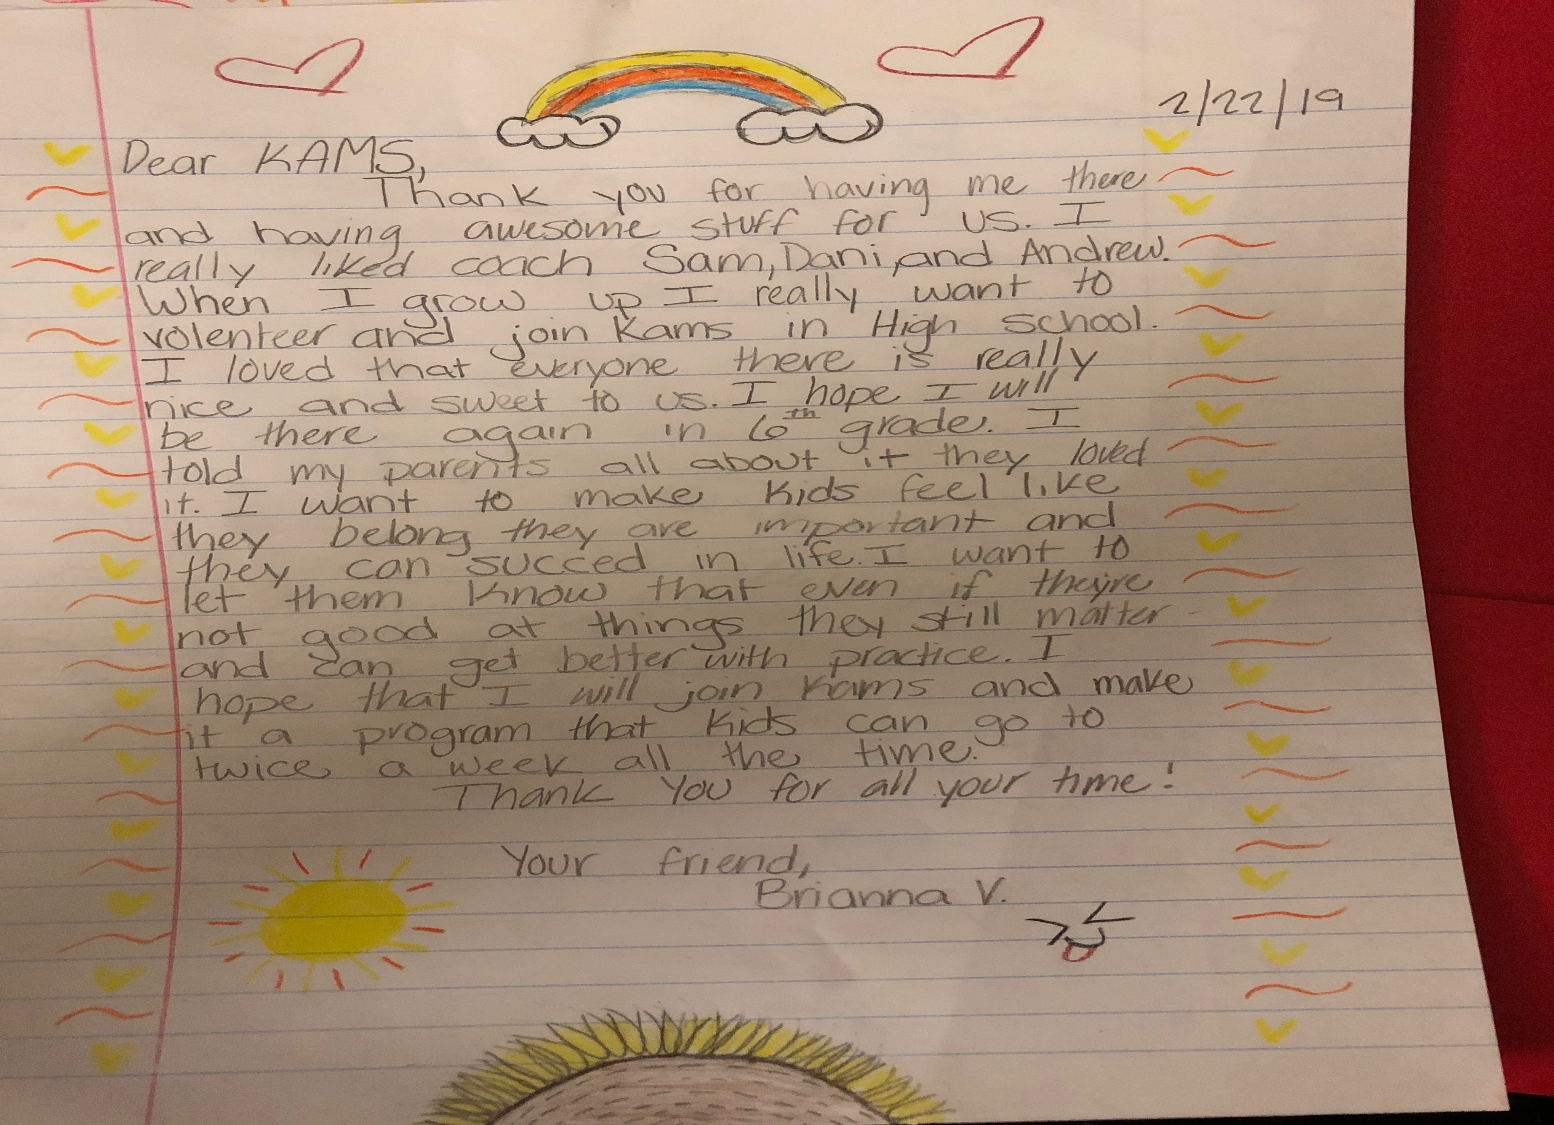 2/22/19
Dear KAMS,
Thank you for having me there
and having awesome stuff for us. I
really liked coach Sam, Dani, and Andrew.
When I grow up I really want to
volenteer and join Kams in High school.
I loved that everyone there is really
nice and sweet to us. I hope I will
be there again in 6th grade. I
told my parents all about it they loved
it. I want to make kids feel like
they belong they are important and
they can succed in life. I want to
let them know that even if they're
not good at things they still matter
and can get better with practice. I
hope that I will join Kams and make
it a program that kids can go to
twice a week all the time.
Thank You for all your time!
Your friend,
Brianna V.